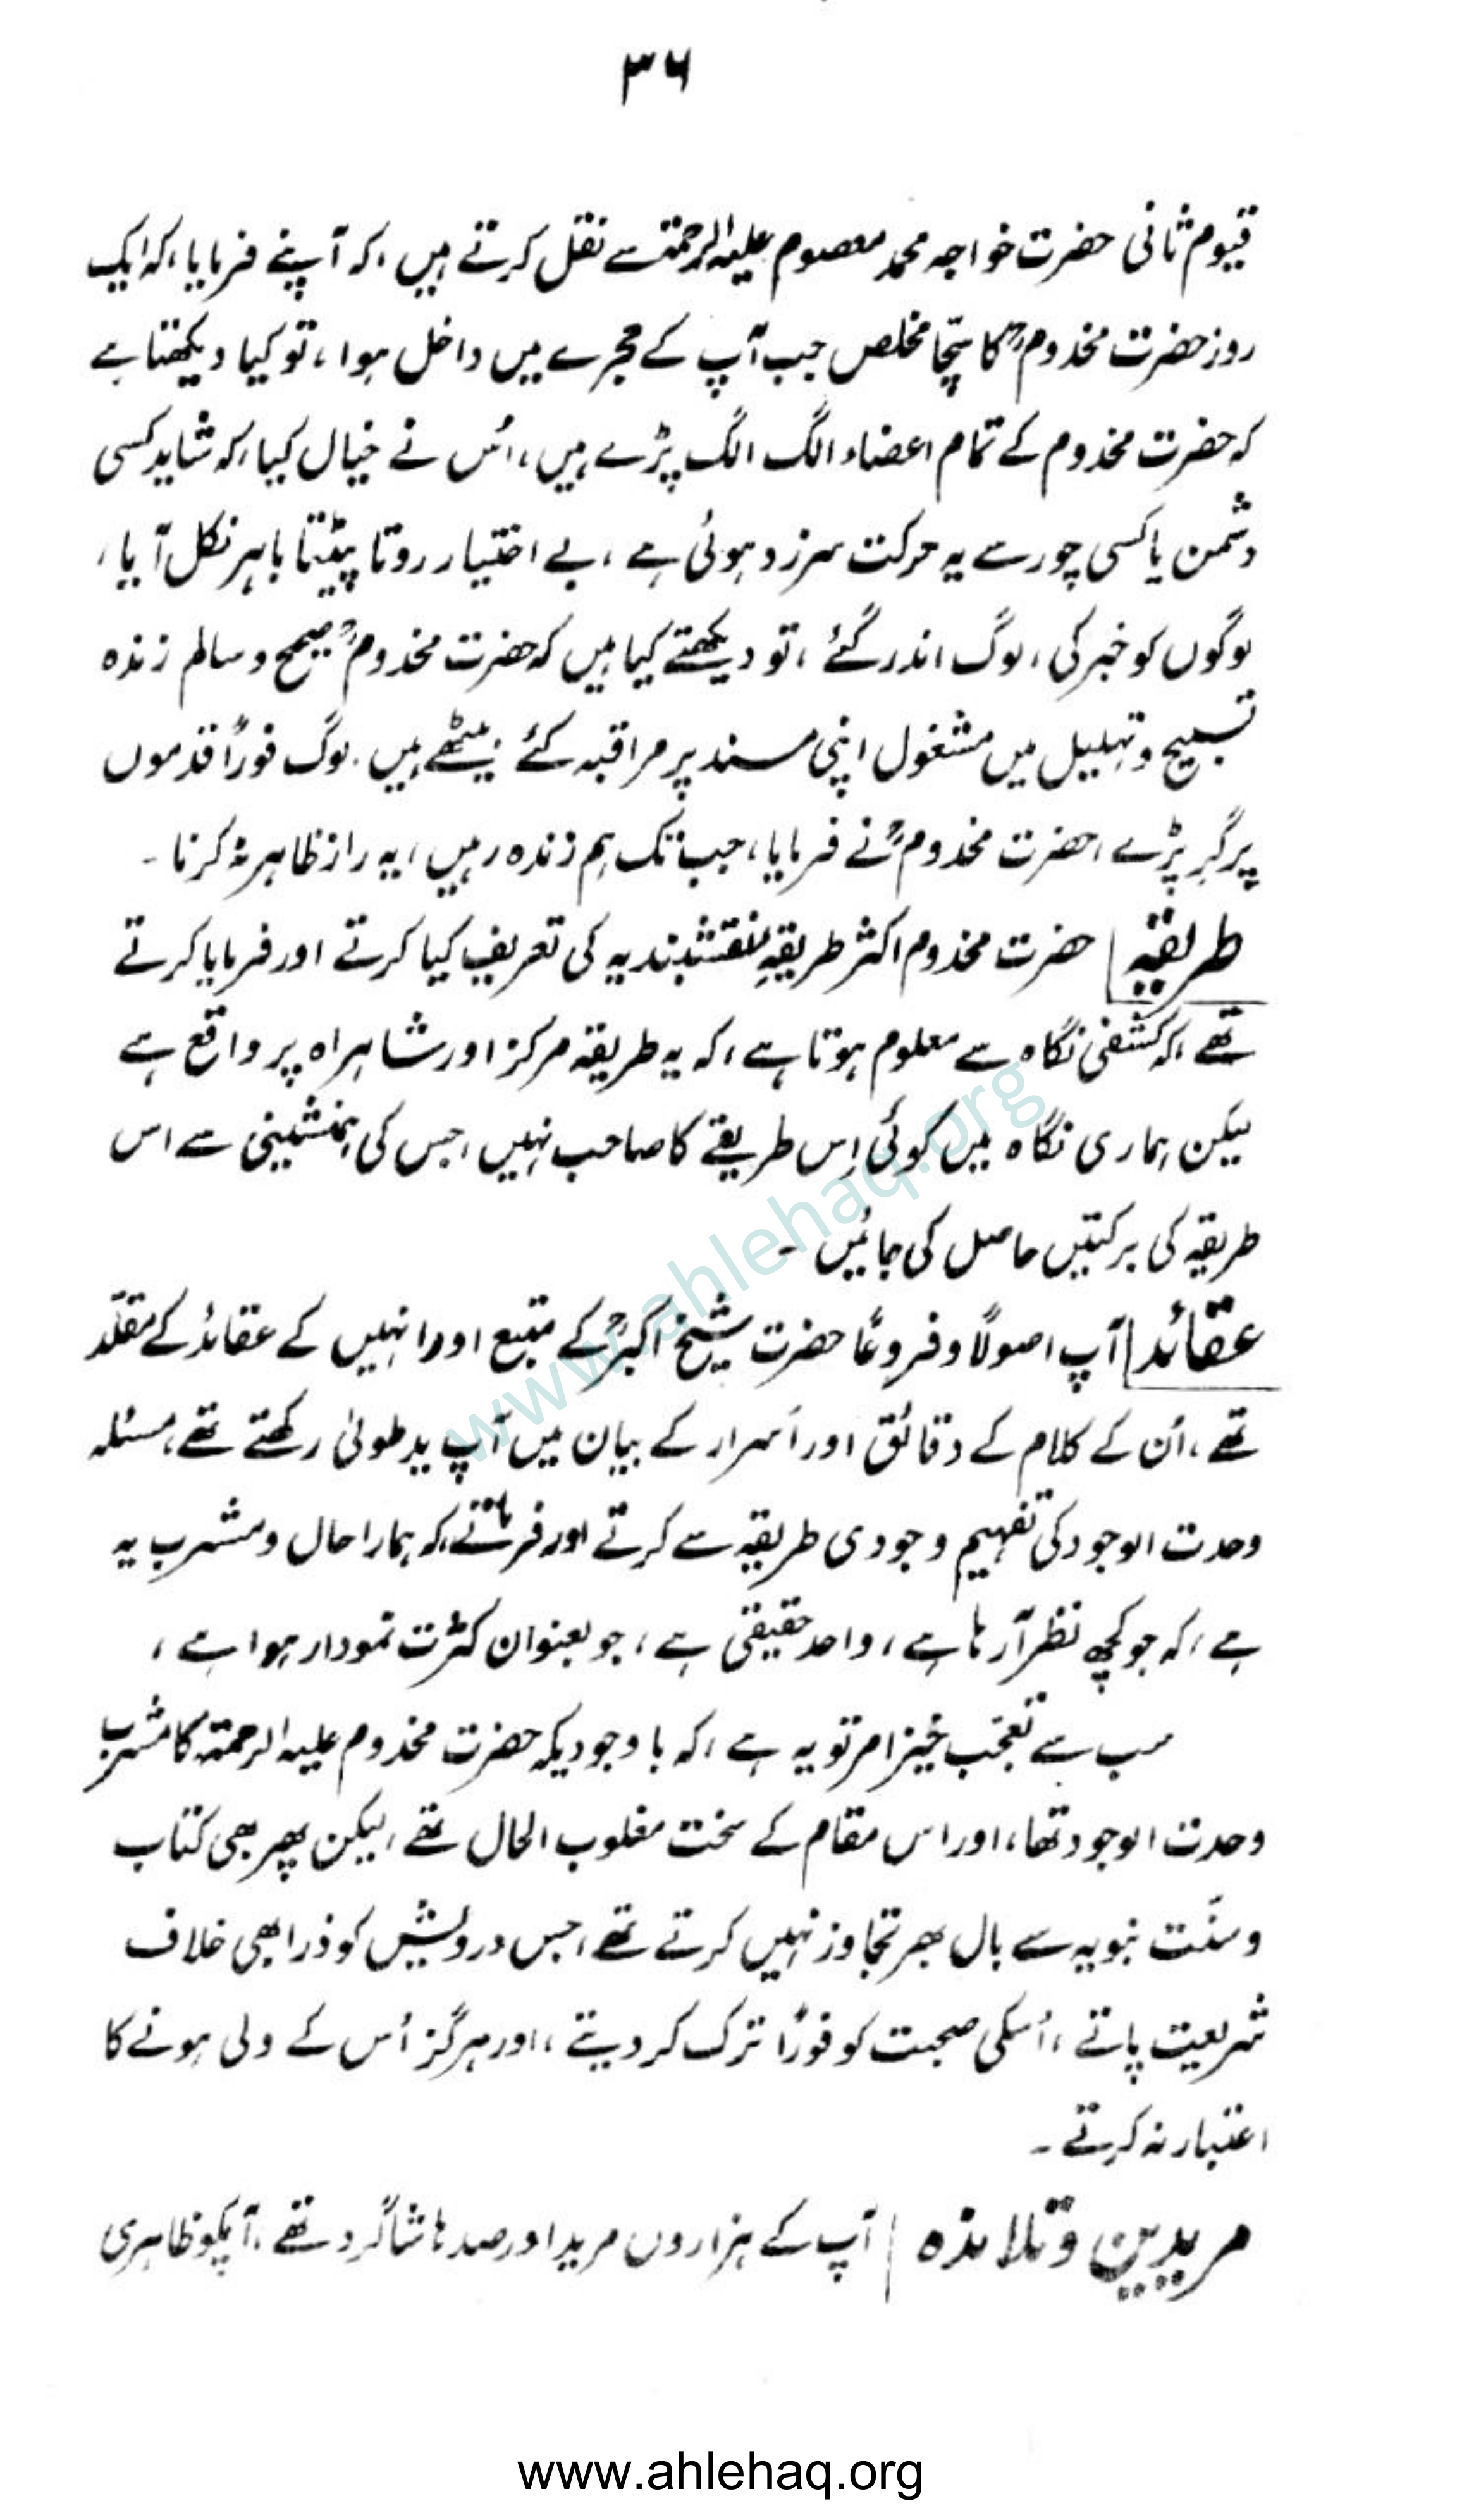 ۳۶
قیوم ثانی حضرت خواجہ محمد معصوم علیہ الرحمۃ سے نقل کرتے ہیں، کہ آپنے فرمایا، کہ ایک
روز حضرت مخدومؒ کا سچّا مخلص جب آپ کے حجرے میں داخل ہوا، تو کیا دیکھتا ہے
کہ حضرت مخدوم کے تمام اعضاء الگ الگ پڑے ہیں، اُس نے خیال کیا، کہ شاید کسی
دشمن یا کسی چور سے یہ حرکت سرزد ہوئی ہے، بے اختیار روتا پیٹتا باہر نکل آیا،
لوگوں کو خبر کی، لوگ اندر گئے، تو دیکھتے کیا ہیں کہ حضرت مخدومؒ صحیح و سالم زندہ
تسبیح و تہلیل میں مشغول اپنی مسند پر مراقبہ کئے بیٹھے ہیں. لوگ فورًا قدموں
پر گر پڑے، حضرت مخدومؒ نے فرمایا، جب تک ہم زندہ رہیں، یہ راز ظاہر نہ کرنا۔
طریقہ | حضرت مخدوم اکثر طریقہِ نقشبندیہ کی تعریف کیا کرتے اور فرمایا کرتے
تھے، کہ کشفی نگاہ سے معلوم ہوتا ہے، کہ یہ طریقہ مرکز اور شاہراہ پر واقع ہے
لیکن ہماری نگاہ میں کوئی اِس طریقے کا صاحب نہیں، جس کی ہمنشینی سے اس
طریقہ کی برکتیں حاصل کی جائیں۔
عقائد | آپ اصولًا و فروعًا حضرت شیخ اکبرؒ کے متبع اور انہیں کے عقائد کے مقلّد
تھے، اُن کے کلام کے دقائق اور اَسرار کے بیان میں آپ ید طولیٰ رکھتے تھے، مسئلہ
وحدت الوجود کی تفہیم وجودی طریقہ سے کرتے اور فرماتے، کہ ہمارا حال و مشرب یہ
ہے، کہ جو کچھ نظر آ رہا ہے، واحد حقیقی ہے، جو بعنوان کثرت نمودار ہوا ہے،
سب سے تعجب خیز امر تو یہ ہے، کہ باوجودیکہ حضرت مخدوم علیہ الرحمۃ کا مشرب
وحدت الوجود تھا، اور اس مقام کے سخت مغلوب الحال تھے، لیکن پھر بھی کتاب
و سنّت نبویہ سے بال بھر تجاوز نہیں کرتے تھے، جس درویش کو ذرا بھی خلاف
شریعت پاتے، اُسکی صحبت کو فورًا ترک کر دیتے، اور ہرگز اُس کے ولی ہونے کا
اعتبار نہ کرتے۔
مریدین و تلامذہ | آپ کے ہزاروں مرید اور صدہا شاگرد تھے، آپکو ظاہری
www.ahlehaq.org
www.ahlehaq.org